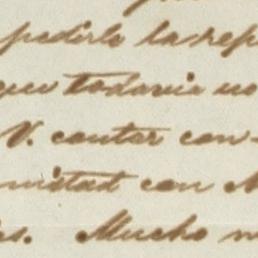 pedirle la rep
que todavia no
V. contar con-
mistad con M
es. Mucho m